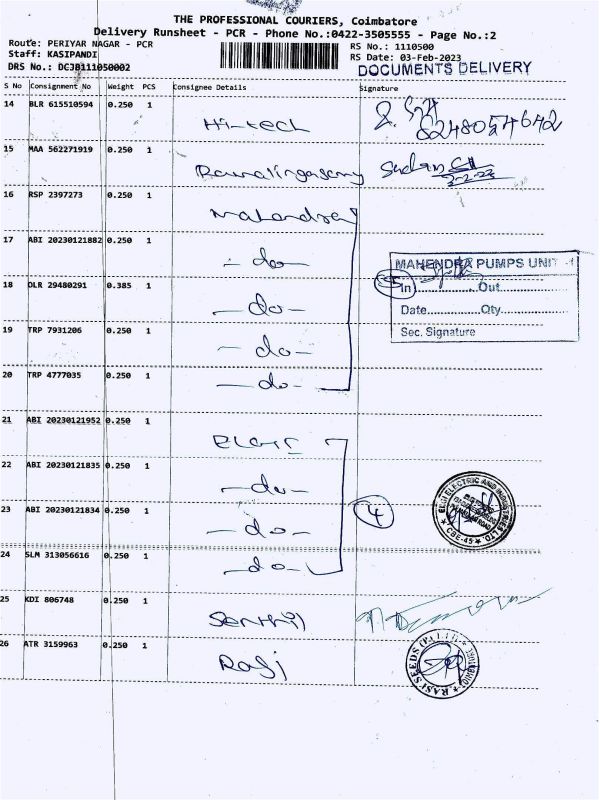 THE PROFESSIONAL COURIERS, Coimbatore
Delivery Runsheet - PCR - Phone No.:0422-3505555 - Page No.:2
Route: PERIYAR NAGAR - PCR
Staff: KASIPANDI
DRS No.: DCJB111050002
RS No.: 1110500
RS Date: 03-Feb-2023
DOCUMENTS DELIVERY
S No Consignment No Weight PCS Consignee Details Signature
14 BLR 615510594 0.250 1 Hi-tech
15 MAA 562271919 0.250 1 Ramalingasamy
16 RSP 2397273 0.250 1 Mahendra
17 ABI 20230121882 0.250 1 - do -
18 DLR 29480291 0.385 1 - do -
19 TRP 7931206 0.250 1 - do -
20 TRP 4777035 0.250 1 - do -
MAHENDRA PUMPS UNIT
5 In...............Out...........
Date..............Qty...........
Sec. Signature
21 ABI 20230121952 0.250 1
22 ABI 20230121835 0.250 1 - do -
23 ABI 20230121834 0.250 1 - do -
4
24 SLM 313056616 0.250 1 - do -
ELGI ELECTRIC AND INDUSTRIES LTD.
CBE-45
25 KDI 806748 0.250 1 Senthil
26 ATR 3159963 0.250 1 Rasi
RASI SEEDS (P) LTD